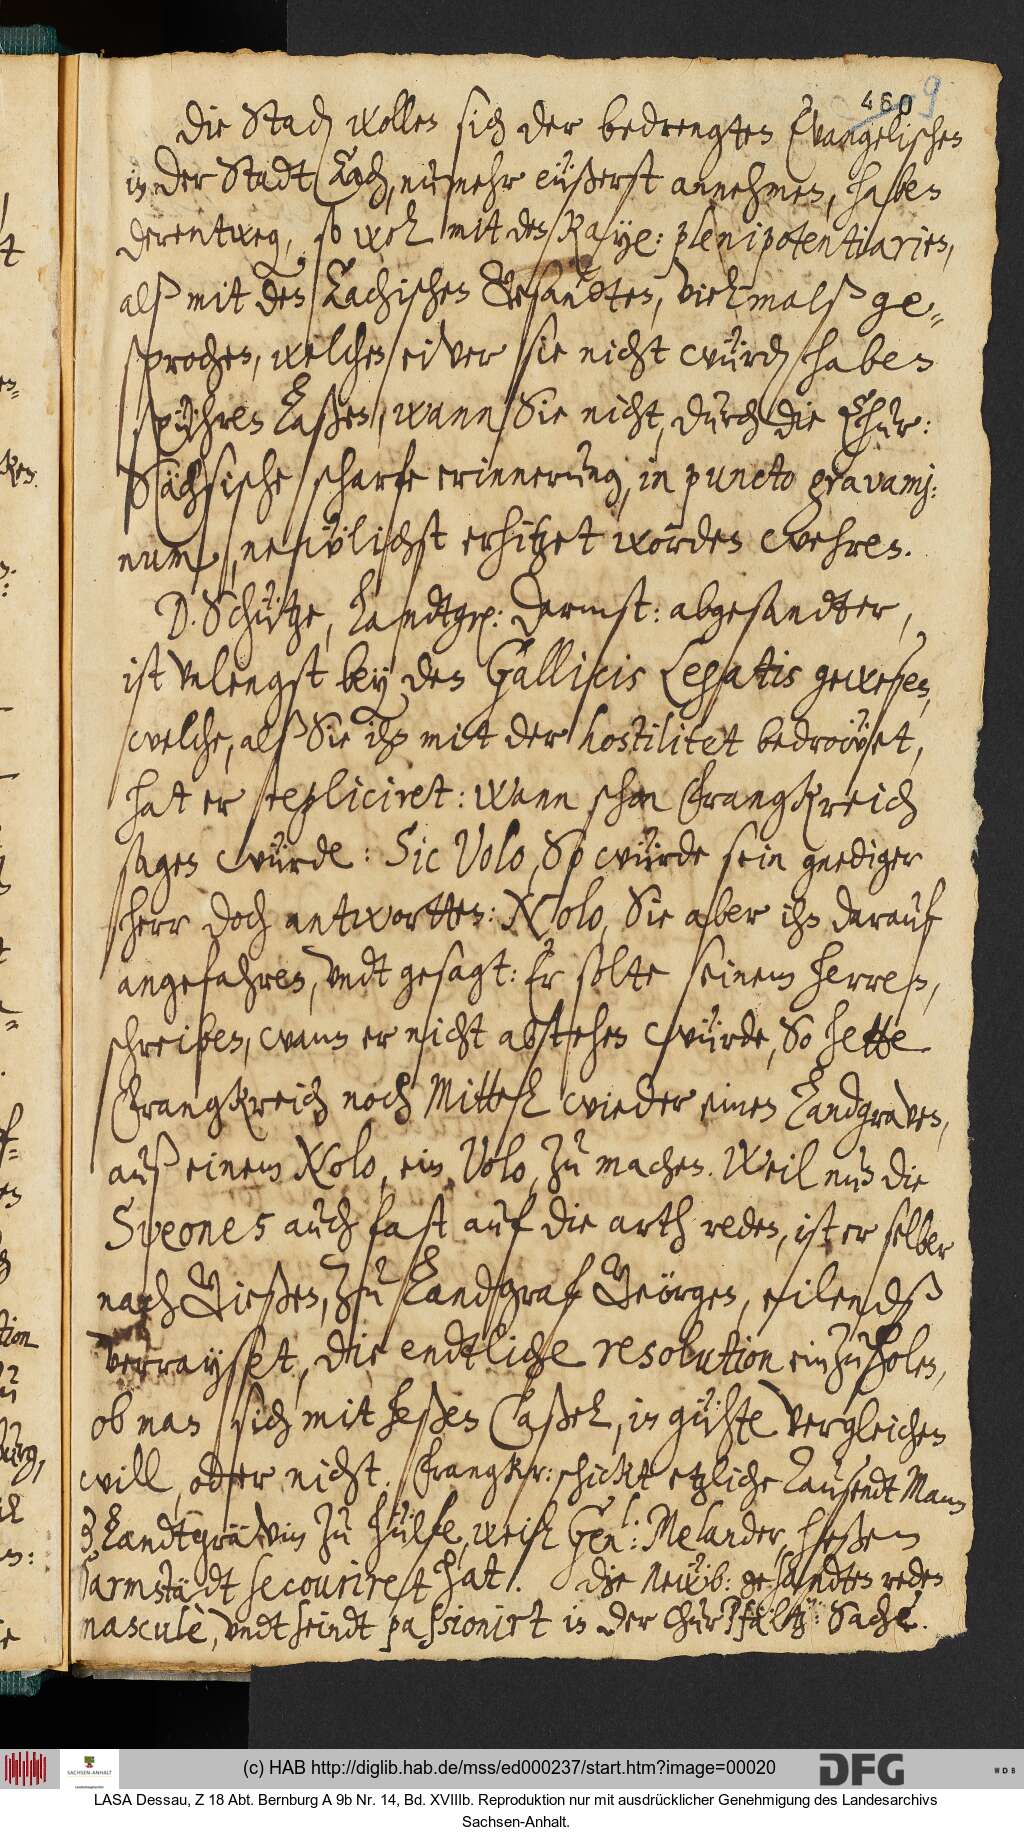 460 9
Die Stadj wollen sich der bedrengten Evangelischen
in der Stadt Aach, numehr eüßerst annehmen, haben
derentweg, so wol mit den Kayl: plenipotentiarien,
alß mit den Aachischen Gesandten, vielmalß ge-
sprochen, welchen eiver sie nicht würdj haben
spühren laßen, wann Sie nicht, durch die Chur:
Sächsische scharfe erinnerung, in puncto gravami-
num, neẅlichst erhitzet worden wehren.
D. Schütze, Landtgr: Darmst: abgesandter,
ist vnlengst bey den Gallicis Legatis gewesen,
welche, alß Sie ihn mit der hostilitet bedroẅet,
hat er repliciret: wann schon Frangkreich
sagen würde: Sic Volo, So würde sein gnediger
herr doch antwortten: Nolo, Sie aber ihn darauf
angefahren, vndt gesagt: Er solte seinem herren,
schreiben, wann er nicht abstehen würde, So hette
Frangkreich noch Mittel wieder einen Landgraven,
auß einem Nolo, ein Volo, zu machen. Weil nun die
Sveones auch fast auf die arth reden, ist er selber
nach Gießen, zu Landgraf Geörgen, eilendß
verraÿset, die endtliche resolution ein zu holen,
ob man sich mit Heßen Caßel, in gühte vergleichen
will, oder nicht. Frangkr: schickt etzliche Tausendt Mann
z. Landtgrävin zu hülfe, weil Gen: Melander, heßen
Darmstadt secouriret hat. Die Newb: gesandten reden
masculè, vndt seindt passionirt in der ChurPfältz: Sache.
(c) HAB http://diglib.hab.de/mss/ed000237/start.htm?image=00020
SACHSEN-ANHALT
DFG
WDB
LASA Dessau, Z 18 Abt. Bernburg A 9b Nr. 14, Bd. XVIIIb. Reproduktion nur mit ausdrücklicher Genehmigung des Landesarchivs
Sachsen-Anhalt.